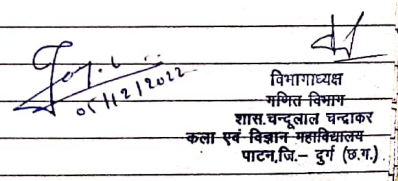 05/12/2022
विभागाध्यक्ष
गणित विभाग
शास.चन्दूलाल चन्द्राकर
कला एवं विज्ञान महाविद्यालय
पाटन,जि.– दुर्ग (छ.ग.)